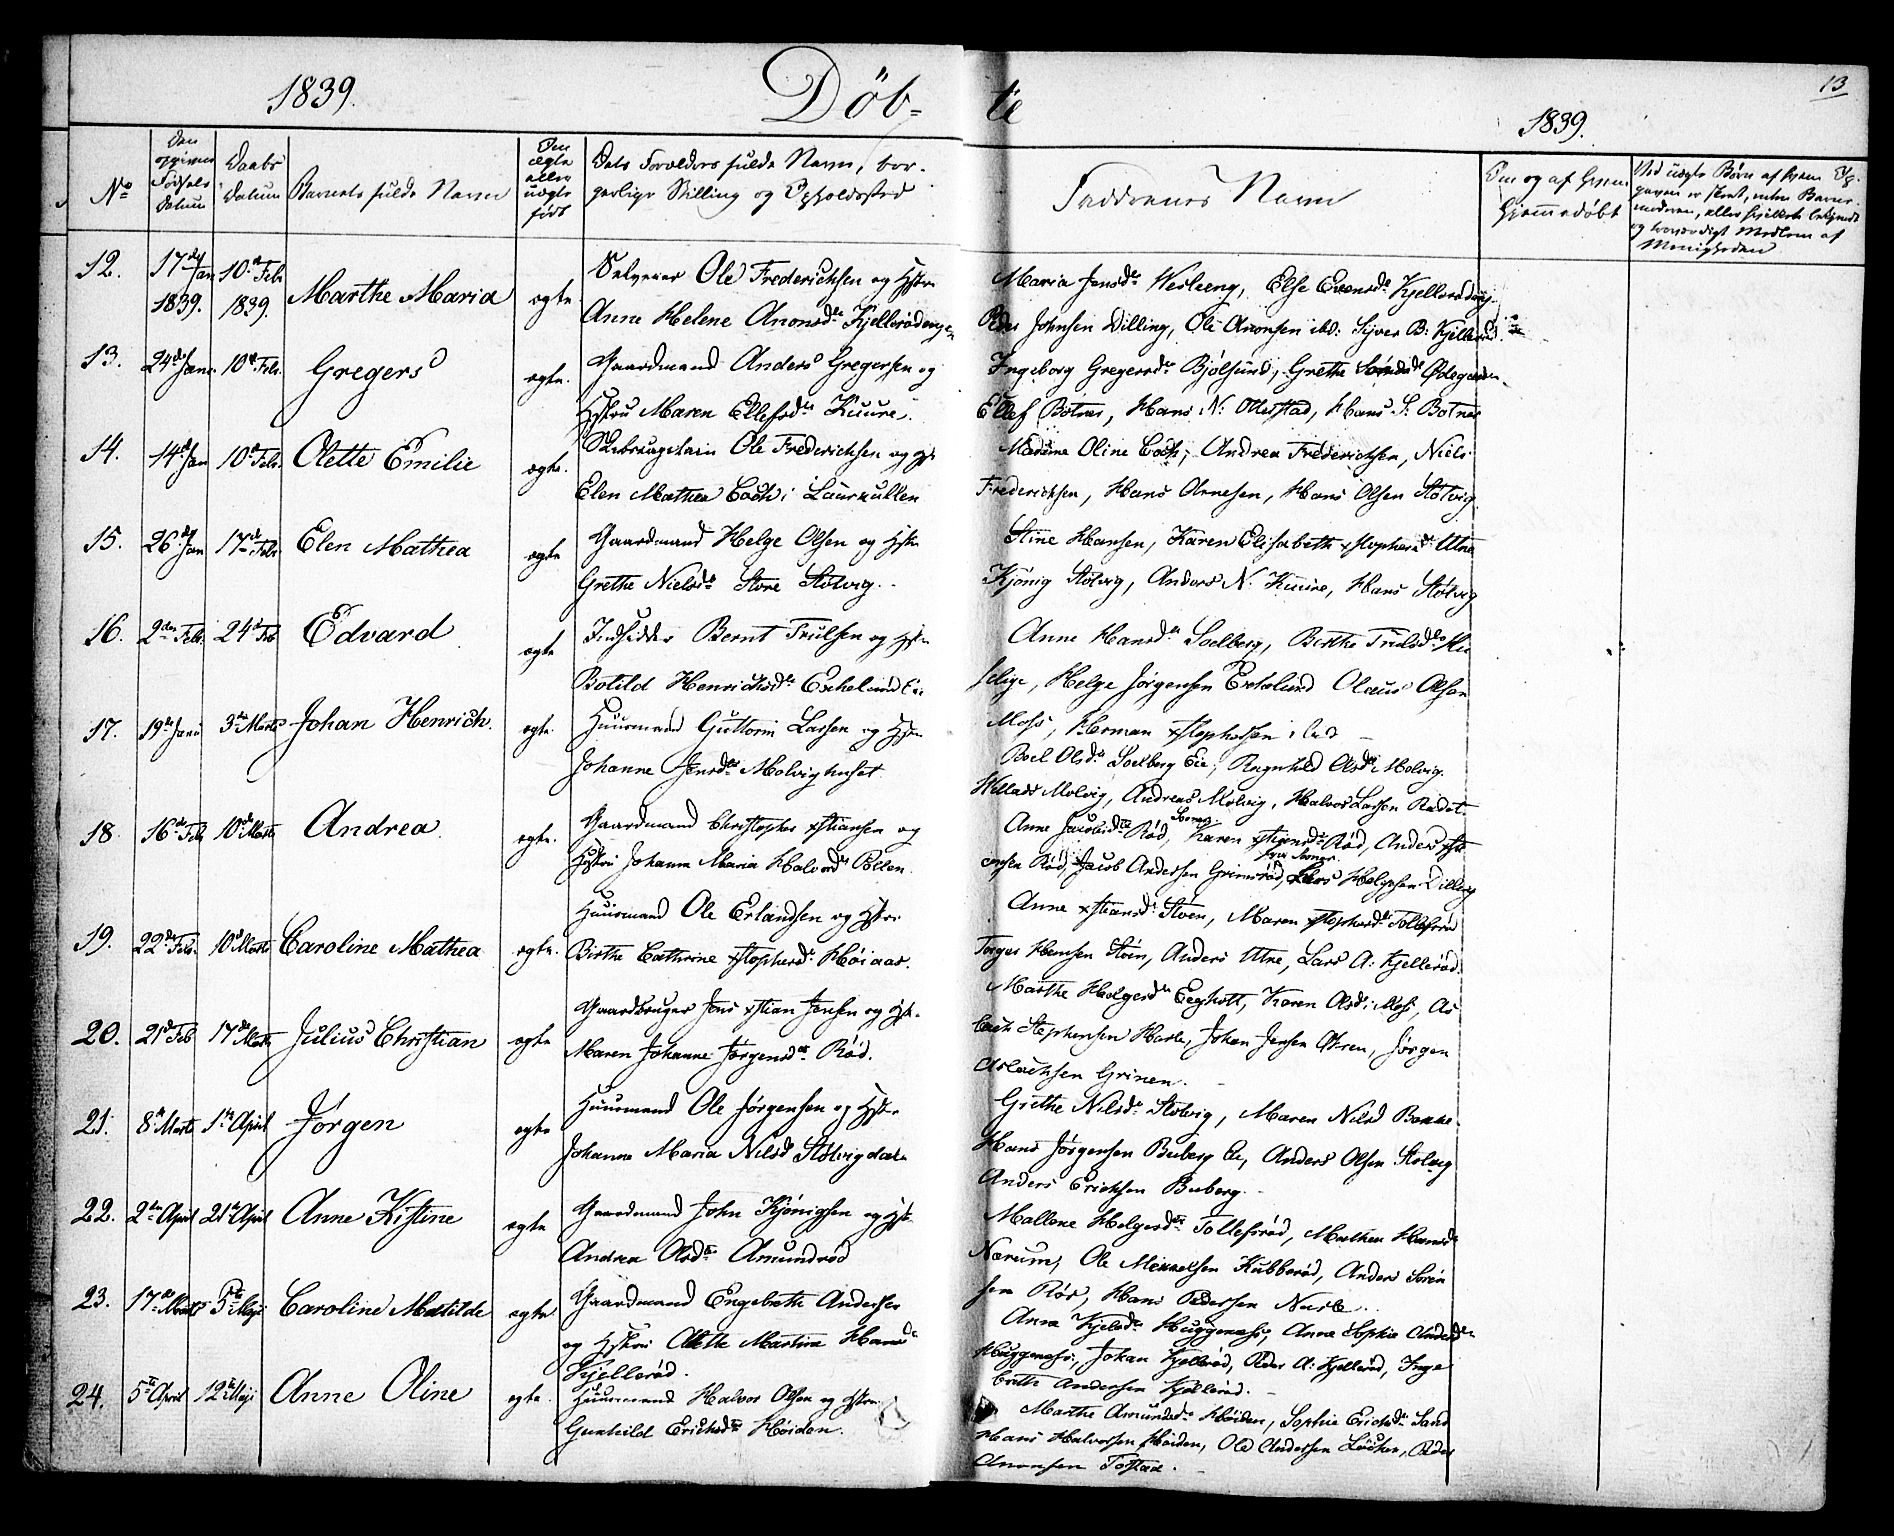 1839.
Döb-
te
1839.
13
No
Den opgivne Fødsels Datum
Daabs Datum
Barnets fulde Navn
Om ægte eller uægte født
Dets Forældres fulde Navn, bor-
gerlige Stilling og Opholdssted
Faddernes Navn
Om og af hvem
hjemmedøbt
12. 17de Jan 1839. 10de Feb. 1839. Marthe Maria ægte
Selveier Ole Frederichsen og Hstru
Anne Helene Anonsdtr Kjellerødengen
Maria Jensdr Vesleeng, Else Evensdr Kjellerødeng
Peder Johnsen Dilling, Ole Anonsen ibd: Syver B: Kjellerød
13. 24de Jan. 10de Feb. Gregers ægte.
Gaardmand Anders Gregersen og
Hstru Maren Ellefsdtr Kuure.
Ingeborg Gregersdr Bjølsund, Grethe Ødegaarden
Ellef Botner, Hans N: Ottersstad, Hans S. Botner
14. 14de Jan 10de Feb. Olette Emilie ægte.
Ole Frederichsen og Hstr
Elen Mathea Coch i Laurkullen
Maréne Oline Coch, Andrea Frederichsen, Niels
Frederichsen, Hans Arnesen, Hans Olsen Stølvig
15. 26de Jan 17de Feb. Elen Mathea ægte
Gaardmand Helge Olsen og Hstru
Grethe Nielsdr Store Stølvig.
Stine Hansen, Karen Elisabeth xstophersdr Utne
Kjönig Stølvig, Anders N. Kuure, Hans Stølvig
16. 2den Feb. 24de Feb Edvard ægte
Indsidder Bernt Trulsen og Hstru
Botild Henrichsdr Exholund Eie
Anne Hansdtr Soelberg, Birthe Trulsdtr
Helge Jørgensen Exholund Olaus Olsen
Moss, Herman xstophersen ibid
17. 19de Janu 3de Marts Johan Henrich. ægte.
Huusmand Guttorm Larsen og Hstru
Johanne Jensdtr Molvighuset.
Boel Olsdr Soelberg Eie, Ragnhild Olsdr Molvig.
Hellads Molvig, Andreas Molvig, Halvor Larsen Rødst.
18. 16de Feb 10de Marts Andrea. ægte.
Gaardmand Christopher xstiansen og
Hstru Johanne Maria Halvorsdr Pollen.
Anne Jacobsdtr Rød, Karen xstiansdr Rød, Anders xsti
ansen Rød, Jacob Andersen Grimsrød, Lars Helgesen Dilling
19. 22de Feb. 10de Marts Caroline Mathea ægte.
Huusmand Ole Erlandsen og Hstru
Birthe Cathrine xstophersdr Höiaas.
Anne xstiansdr Støen, Maren xstophersdr Tollefsrød
Torger Hansen Støen, Anders Utne, Lars A: Kjellerød.
20. 21de Feb 17de Marts Julius Christian ægte
Gaardbruger Jens xstian Jensen og Hstr.
Maren Johanne Jørgensdtr Rød.
Marthe Holgersdtr Eeghott, Karen Olsdr i Moss, As
lach Stephensen Horte, Johan Jensen Øren, Jørgen
Aslachsen Grinen.
21. 8de Marts 1ste April Jørgen ægte
Huusmand Ole Jørgensen og Hstru
Johanne Maria Nilsd Stølvigdale
Grethe Nilsdr Stolvig, Maren Nilsd Bakke.
Hans Jørgensen Buberg Eie, Anders Olsen Stolvig
Anders Erichsen Buberg.
22. 2den April 21de April Anne Kistine ægte
Gaardmand John Kjönigsen og Hstr.
Andrea Olsdtr Amundrød
Mallene Helgesdtr Tollefsrød, Mathea Hansdr
Nærum, Ole Mikkelsen Kubberød, Anders Sören
sen Rör, Hans Pedersen Narle.
23. 17de Marts 5te Mai Caroline Matilde ægte
Gaardmand Engebreth Andersen
og Hstru Olette Martine Hansdr
Kjellerød.
Anne Kjelsdr Huggenæs, Anne Sophie Andersdtr
Huggenæs, Johan Kjellerød, Peder A: Kjellerød, Inge
breth Andersen Kjellerød.
24. 5te April 12te Maji Anne Oline ægte.
Huusmand Halvor Olsen og Hstru
Gunhild Erichsdtr Höiden.
Marthe Amundsdr Höiden, Sophie Erichsdr Sand
Hans Halvorsen Höiden, Ole Andersen Löcken, Peder
Anonsen Tofstad.